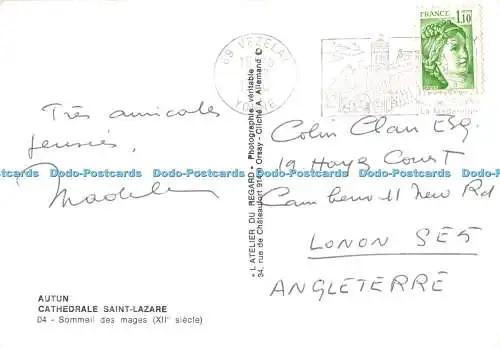 89 VEZELAY
YONNE
La Madeleine
FRANCE
1,10
Très amicales
pensées,
Madel
Colin Clan Esq.
19 Hays Court
Camberwell New Rd
LONON SE5
ANGLETERRE
« L'ATELIER DU REGARD » Photographie véritable
34, rue de Châteaufort 91400 Orsay - Cliché A. Allemand ©
AUTUN
CATHEDRALE SAINT-LAZARE
04 - Sommeil des mages (XIIe siècle)
Dodo-Postcards Dodo-Postcards Dodo-Postcards Dodo-Postcards Dodo-Postcards